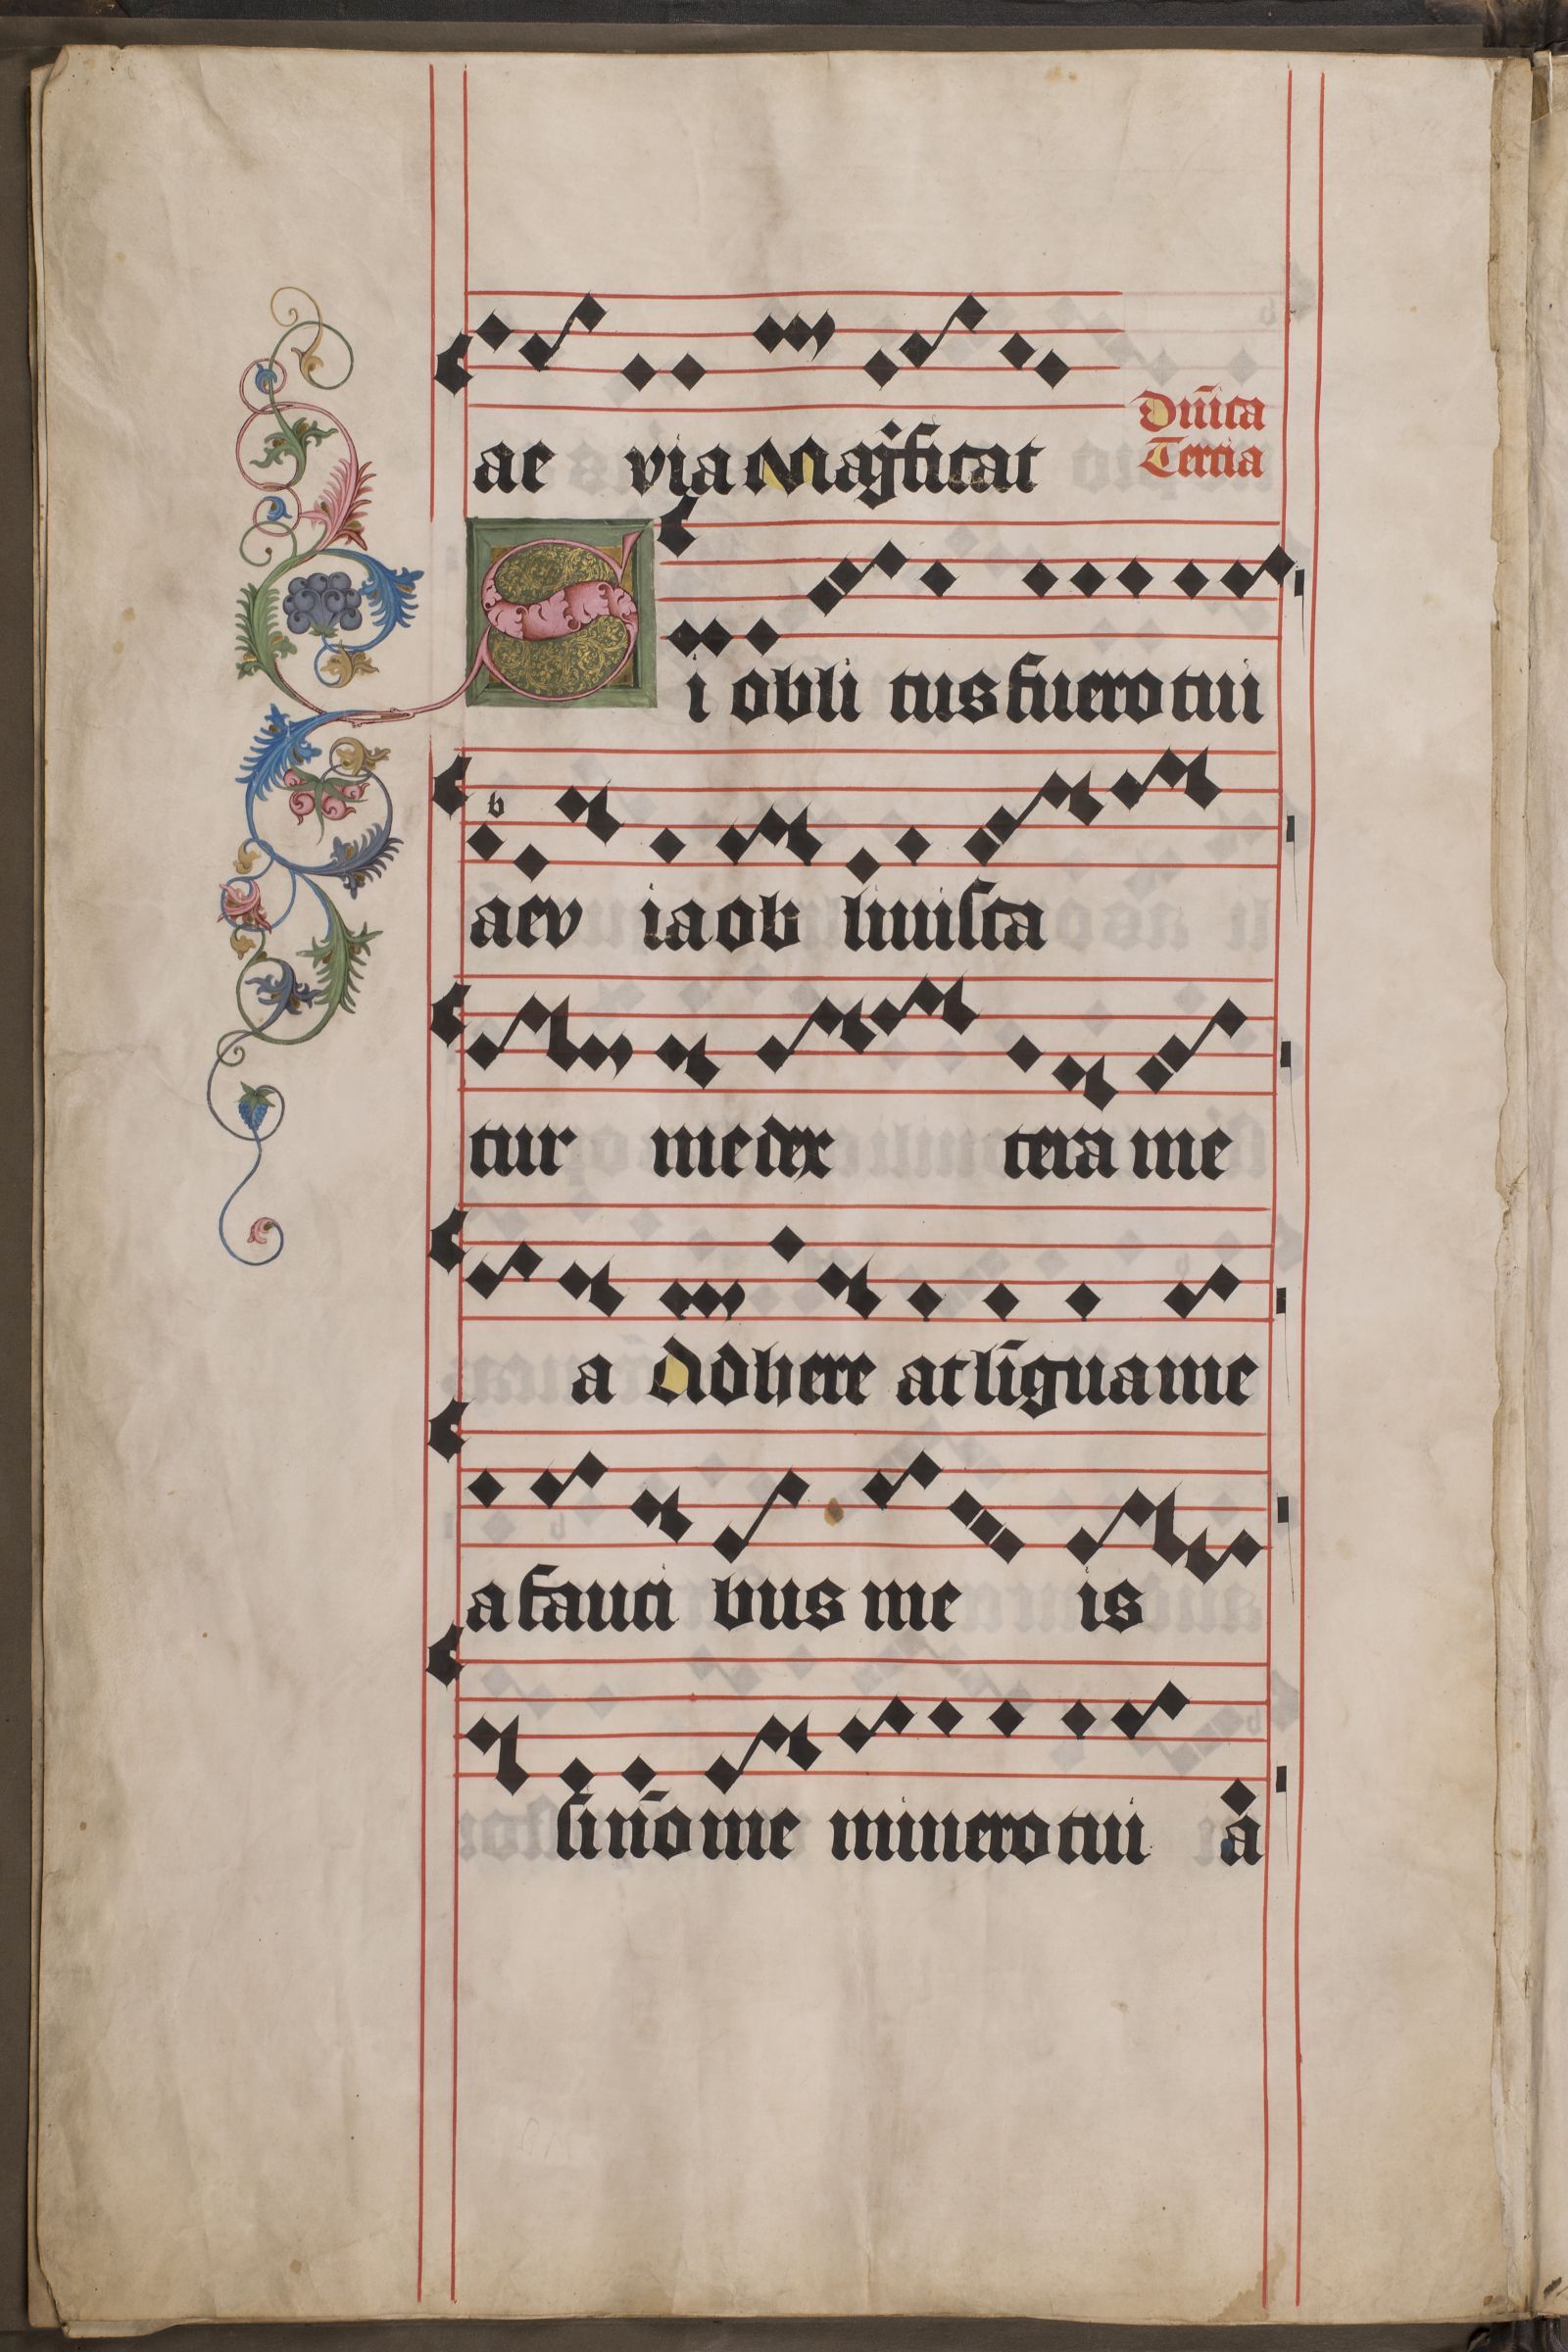 ae via Magñficat
Dñica
Tertia
Si obli tus fuero tui
aev ia ob liuiſca
tur me dex tera me
a Adhere at lĩgua me
a fauci bus me is
ſi nõ me minero tui a